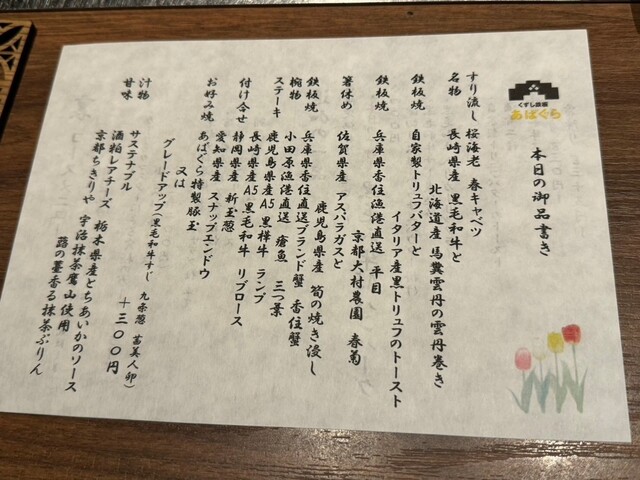 くずし鉄板
あばぐら
本日の御品書き
すり流し 桜海老 春キャベツ
名物 長崎県産 黒毛和牛と
北海道産 馬糞雲丹の雲丹巻き
鉄板焼 自家製トリュフバターと
イタリア産黒トリュフのトースト
鉄板焼 兵庫県香住漁港直送 平目
京都大村農園 春菊
箸休め 佐賀県産 アスパラガスと
鹿児島県産 筍の焼き浸し
鉄板焼 兵庫県香住直送ブランド蟹 香住蟹
椀物 小田原漁港直送 瘡魚 三つ葉
ステーキ 鹿児島県産A5黒樺牛 ランプ
長崎県産A5黒毛和牛 リブロース
付け合せ 静岡県産 新玉葱
愛知県産 スナップエンドウ
お好み焼 あばぐら特製豚玉
又は
グレードアップ(黒毛和牛すじ 九条葱 茜美人卵)
+三〇〇円
汁物 サステナブル
甘味 酒粕レアチーズ 栃木県産とちあいかのソース
京都ちきりや 宇治抹茶鷹山使用
蕗の薹香る抹茶ぷりん